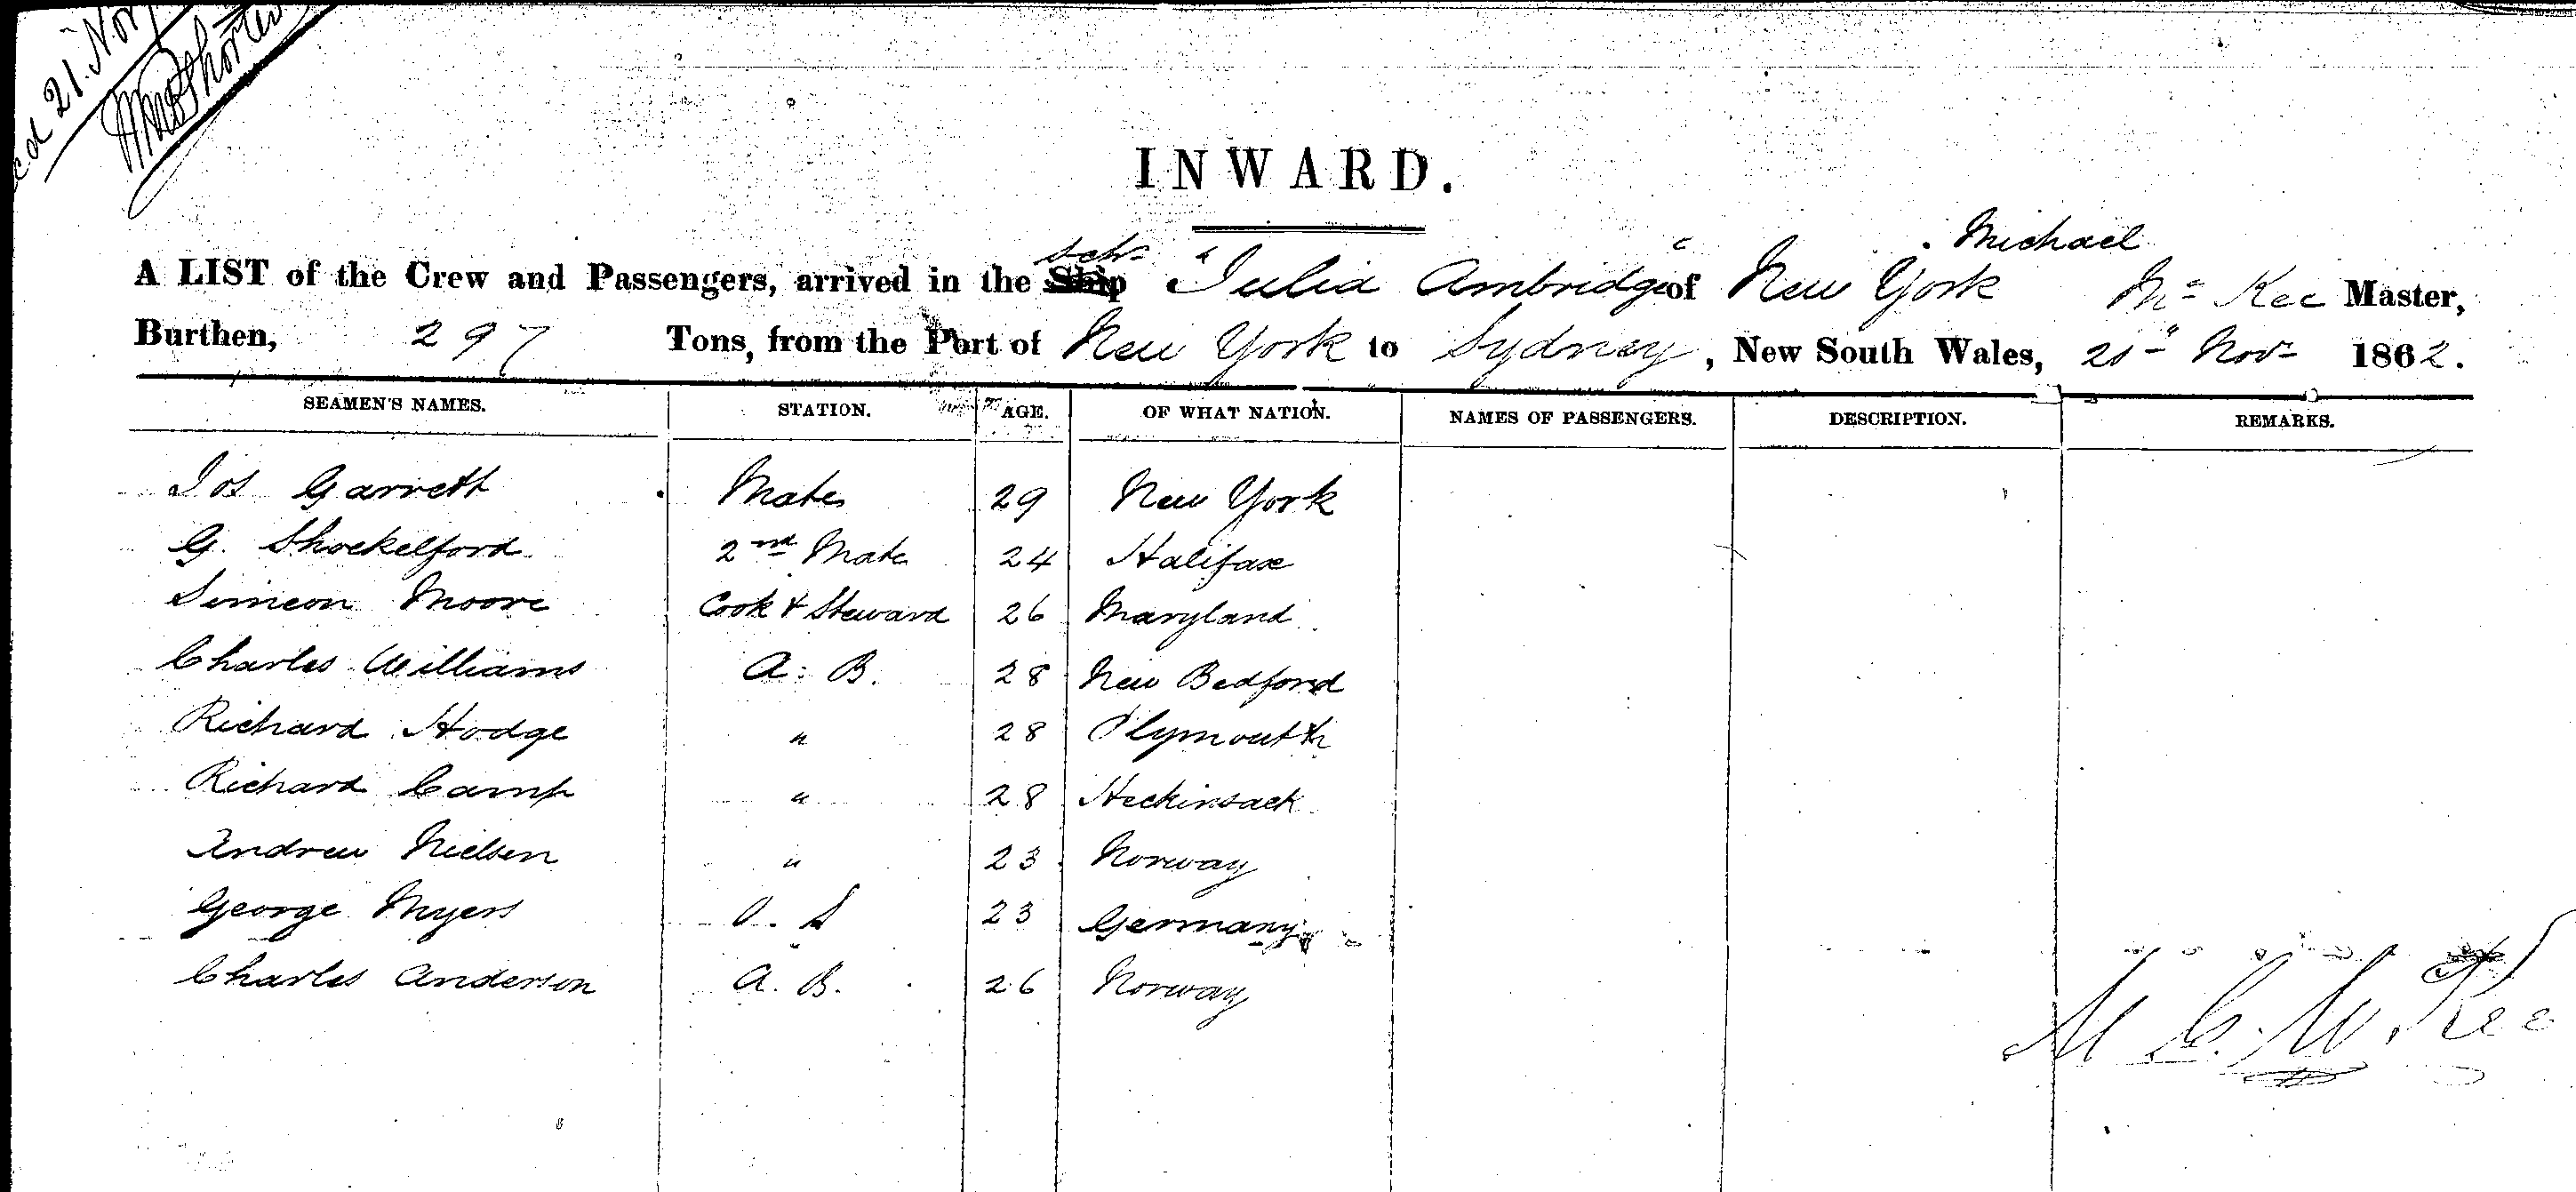 21. Nov
INWARD.
Michael
schr
A LIST of the Crew and Passengers, arrived in the Ship "Julia Ambridge" of New York Mc Kee Master,
Burthen, 297 Tons, from the Port of New York to Sydney, New South Wales, Novr 1862.
SEAMEN'S NAMES. STATION. AGE. OF WHAT NATION. NAMES OF PASSENGERS. DESCRIPTION. REMARKS.
Jos Garrett Mate 29 New York
G. Shockelford 2nd Mate 24 Halifax
Simeon Moore Cook & Steward 26 Maryland
Charles Williams A: B. 28 New Bedford
Richard Hodge " 28 Plymouth
Richard Camp " 28 Heckinsack
Andrew Nielsen " 23 Norway
George Myers O. S 23 Germany
Charles Anderson A. B. 26 Norway
M C. Mc Kee